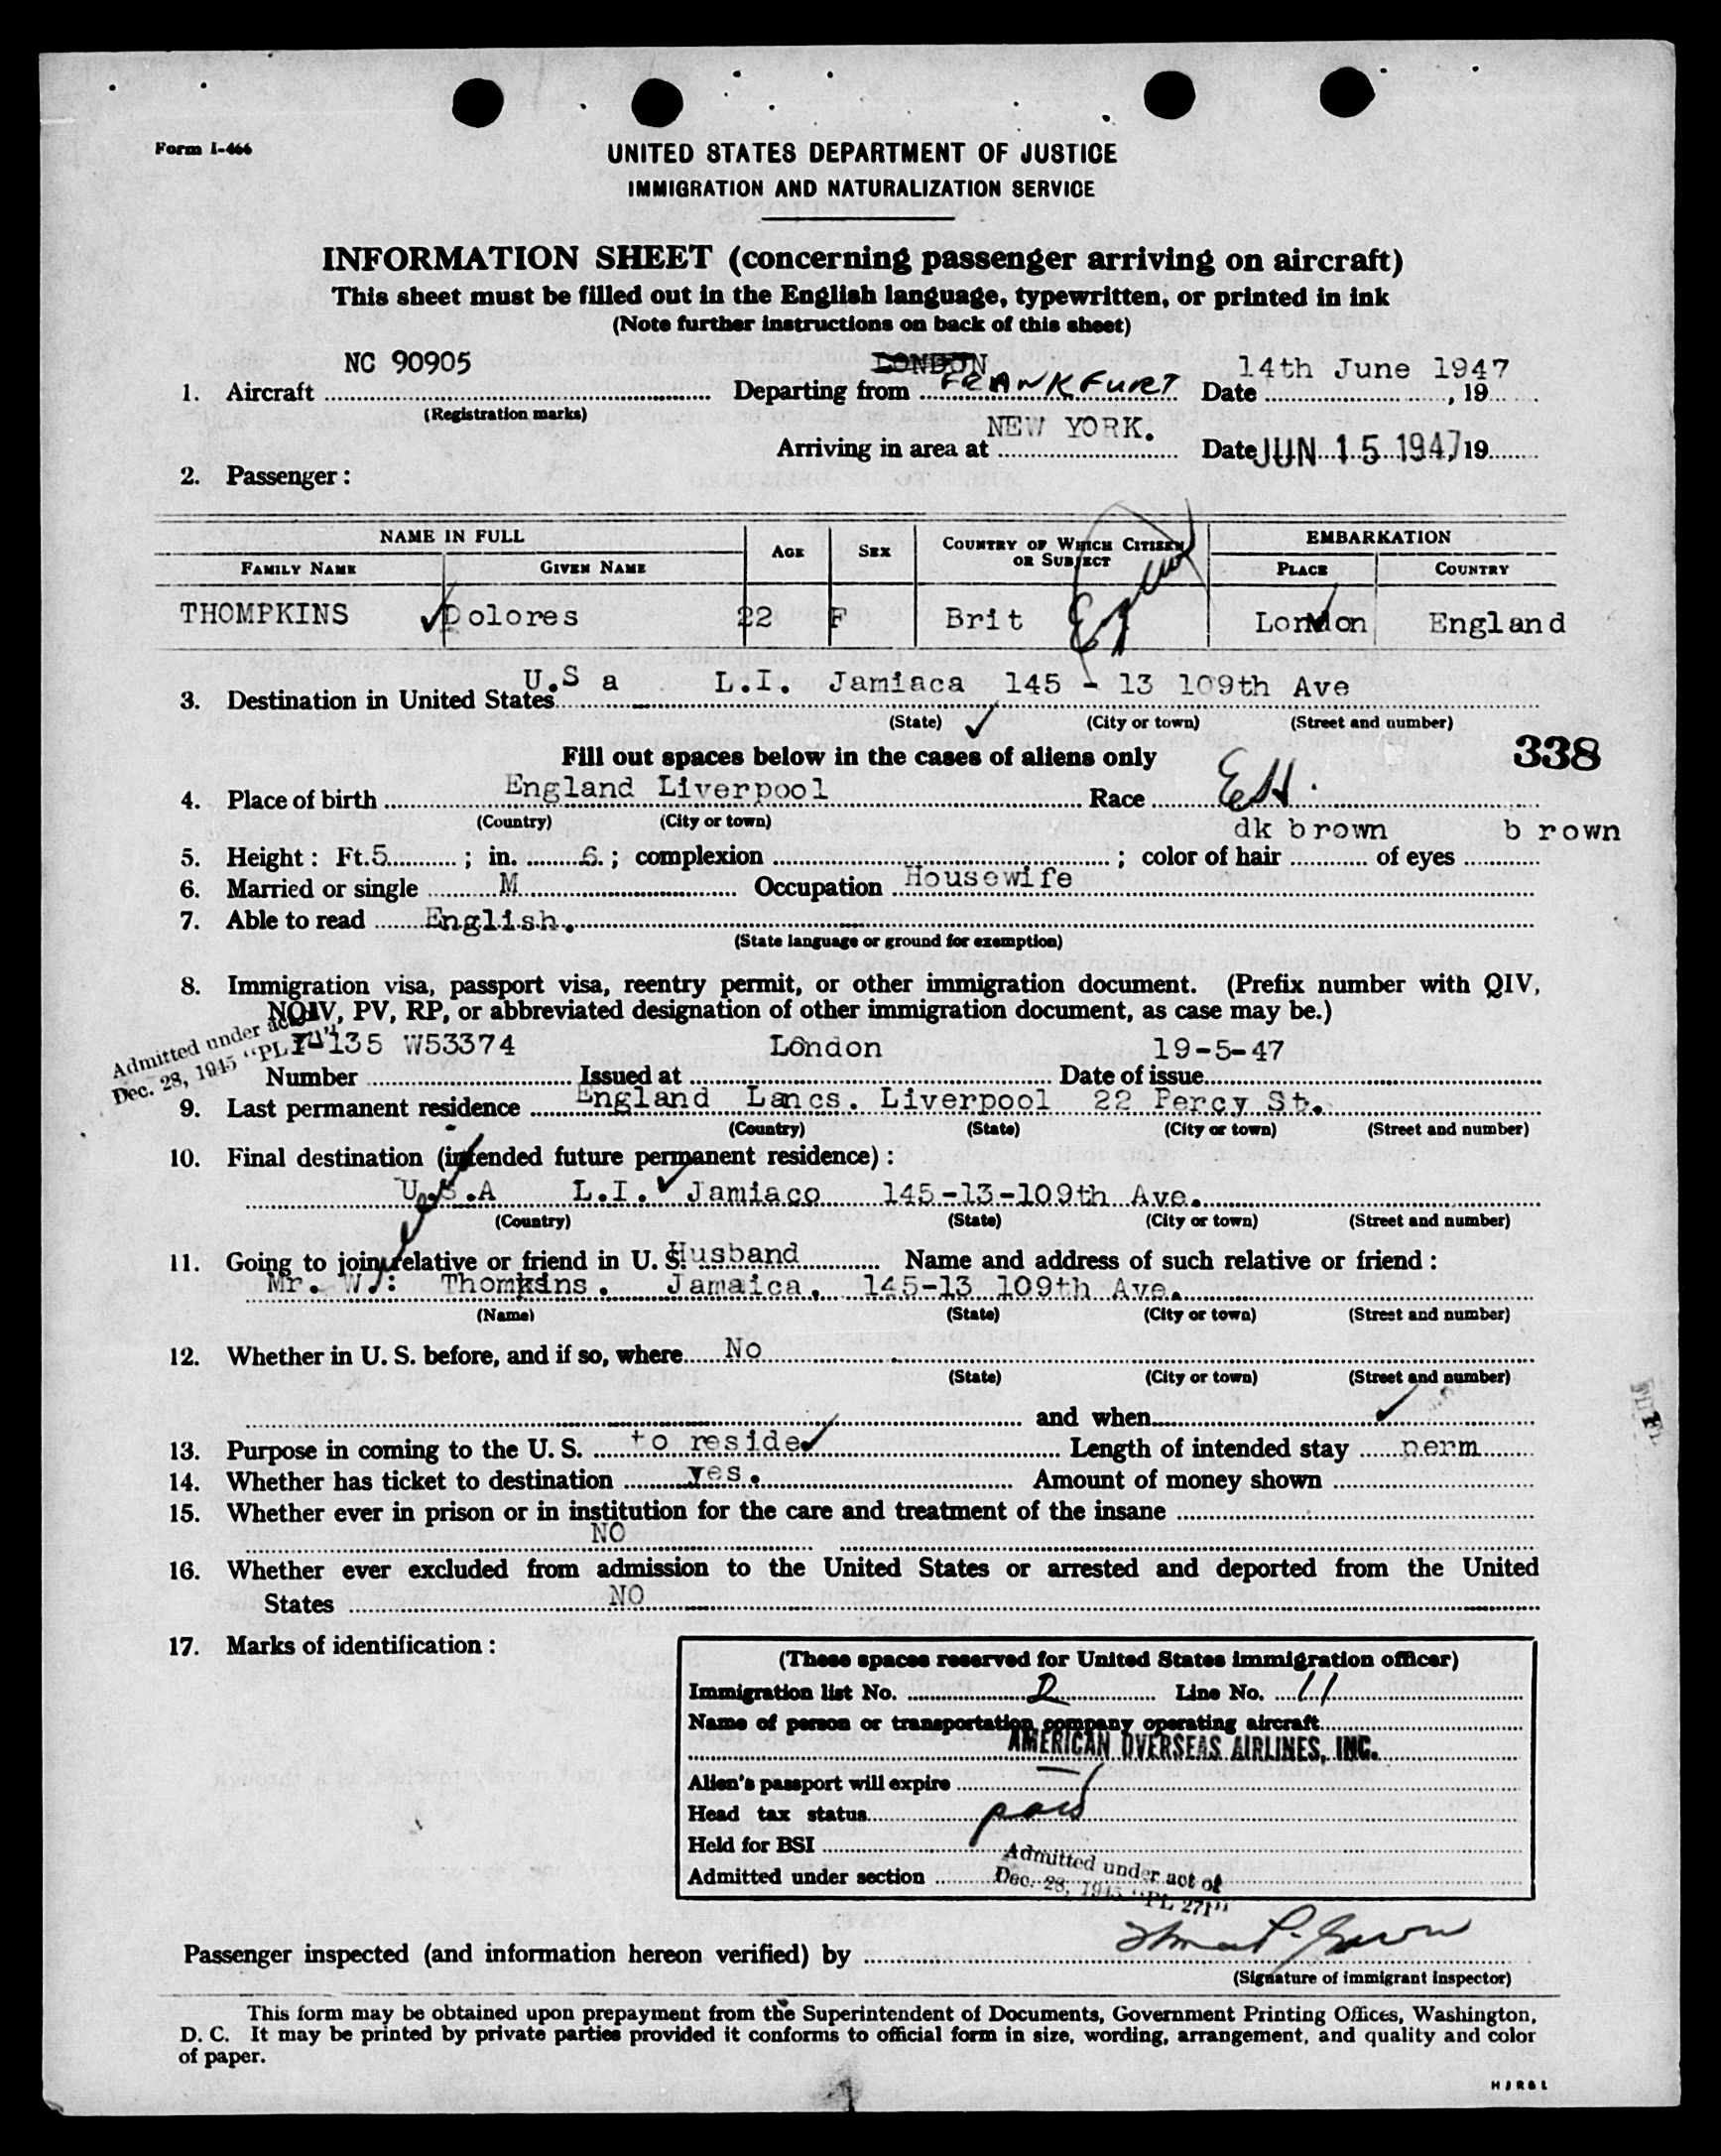 Form I-466
UNITED STATES DEPARTMENT OF JUSTICE
IMMIGRATION AND NATURALIZATION SERVICE
INFORMATION SHEET (concerning passenger arriving on aircraft)
This sheet must be filled out in the English language, typewritten, or printed in ink
(Note further instructions on back of this sheet)
NC 90905 LONDON 14th June 1947
1. Aircraft Departing from FRANKFURT Date , 19
(Registration marks)
NEW YORK.
Arriving in area at Date JUN 15 1947 19
2. Passenger:
NAME IN FULL AGE SEX COUNTRY OF WHICH CITIZEN OR SUBJECT EMBARKATION
FAMILY NAME GIVEN NAME PLACE COUNTRY
THOMPKINS Dolores 22 F Brit London England
3. Destination in United States U.S a L.I. Jamiaca 145 - 13 109th Ave
(State) (City or town) (Street and number)
Fill out spaces below in the cases of aliens only 338
4. Place of birth England Liverpool Race
(Country) (City or town)
dk brown brown
5. Height: Ft. 5 ; in. 6. ; complexion ; color of hair of eyes
6. Married or single M Occupation Housewife
7. Able to read English.
(State language or ground for exemption)
8. Immigration visa, passport visa, reentry permit, or other immigration document. (Prefix number with QIV,
NQIV, PV, RP, or abbreviated designation of other immigration document, as case may be.)
Admitted under act
Dec. 28, 1945 "PL
135 W53374 London 19-5-47
Number Issued at Date of issue
9. Last permanent residence England Lancs. Liverpool 22 Percy St.
(Country) (State) (City or town) (Street and number)
10. Final destination (intended future permanent residence):
U.S.A L.I. Jamiaco 145-13-109th Ave.
(Country) (State) (City or town) (Street and number)
11. Going to join relative or friend in U. S. Husband Name and address of such relative or friend:
Mr. W.: Thomkins. Jamaica, 145-13 109th Ave.
(Name) (State) (City or town) (Street and number)
12. Whether in U. S. before, and if so, where No
(State) (City or town) (Street and number)
and when
13. Purpose in coming to the U. S. to reside Length of intended stay perm
14. Whether has ticket to destination yes. Amount of money shown
15. Whether ever in prison or in institution for the care and treatment of the insane
NO
16. Whether ever excluded from admission to the United States or arrested and deported from the United
States NO
17. Marks of identification:
(These spaces reserved for United States immigration officer)
Immigration list No. 2 Line No. 11
Name of person or transportation company operating aircraft
AMERICAN OVERSEAS AIRLINES, INC.
Alien's passport will expire
Head tax status paid
Held for BSI
Admitted under section Admitted under act of
Dec. 28, 1945 "PL 271"
Passenger inspected (and information hereon verified) by
(Signature of immigrant inspector)
This form may be obtained upon prepayment from the Superintendent of Documents, Government Printing Offices, Washington,
D. C. It may be printed by private parties provided it conforms to official form in size, wording, arrangement, and quality and color
of paper.